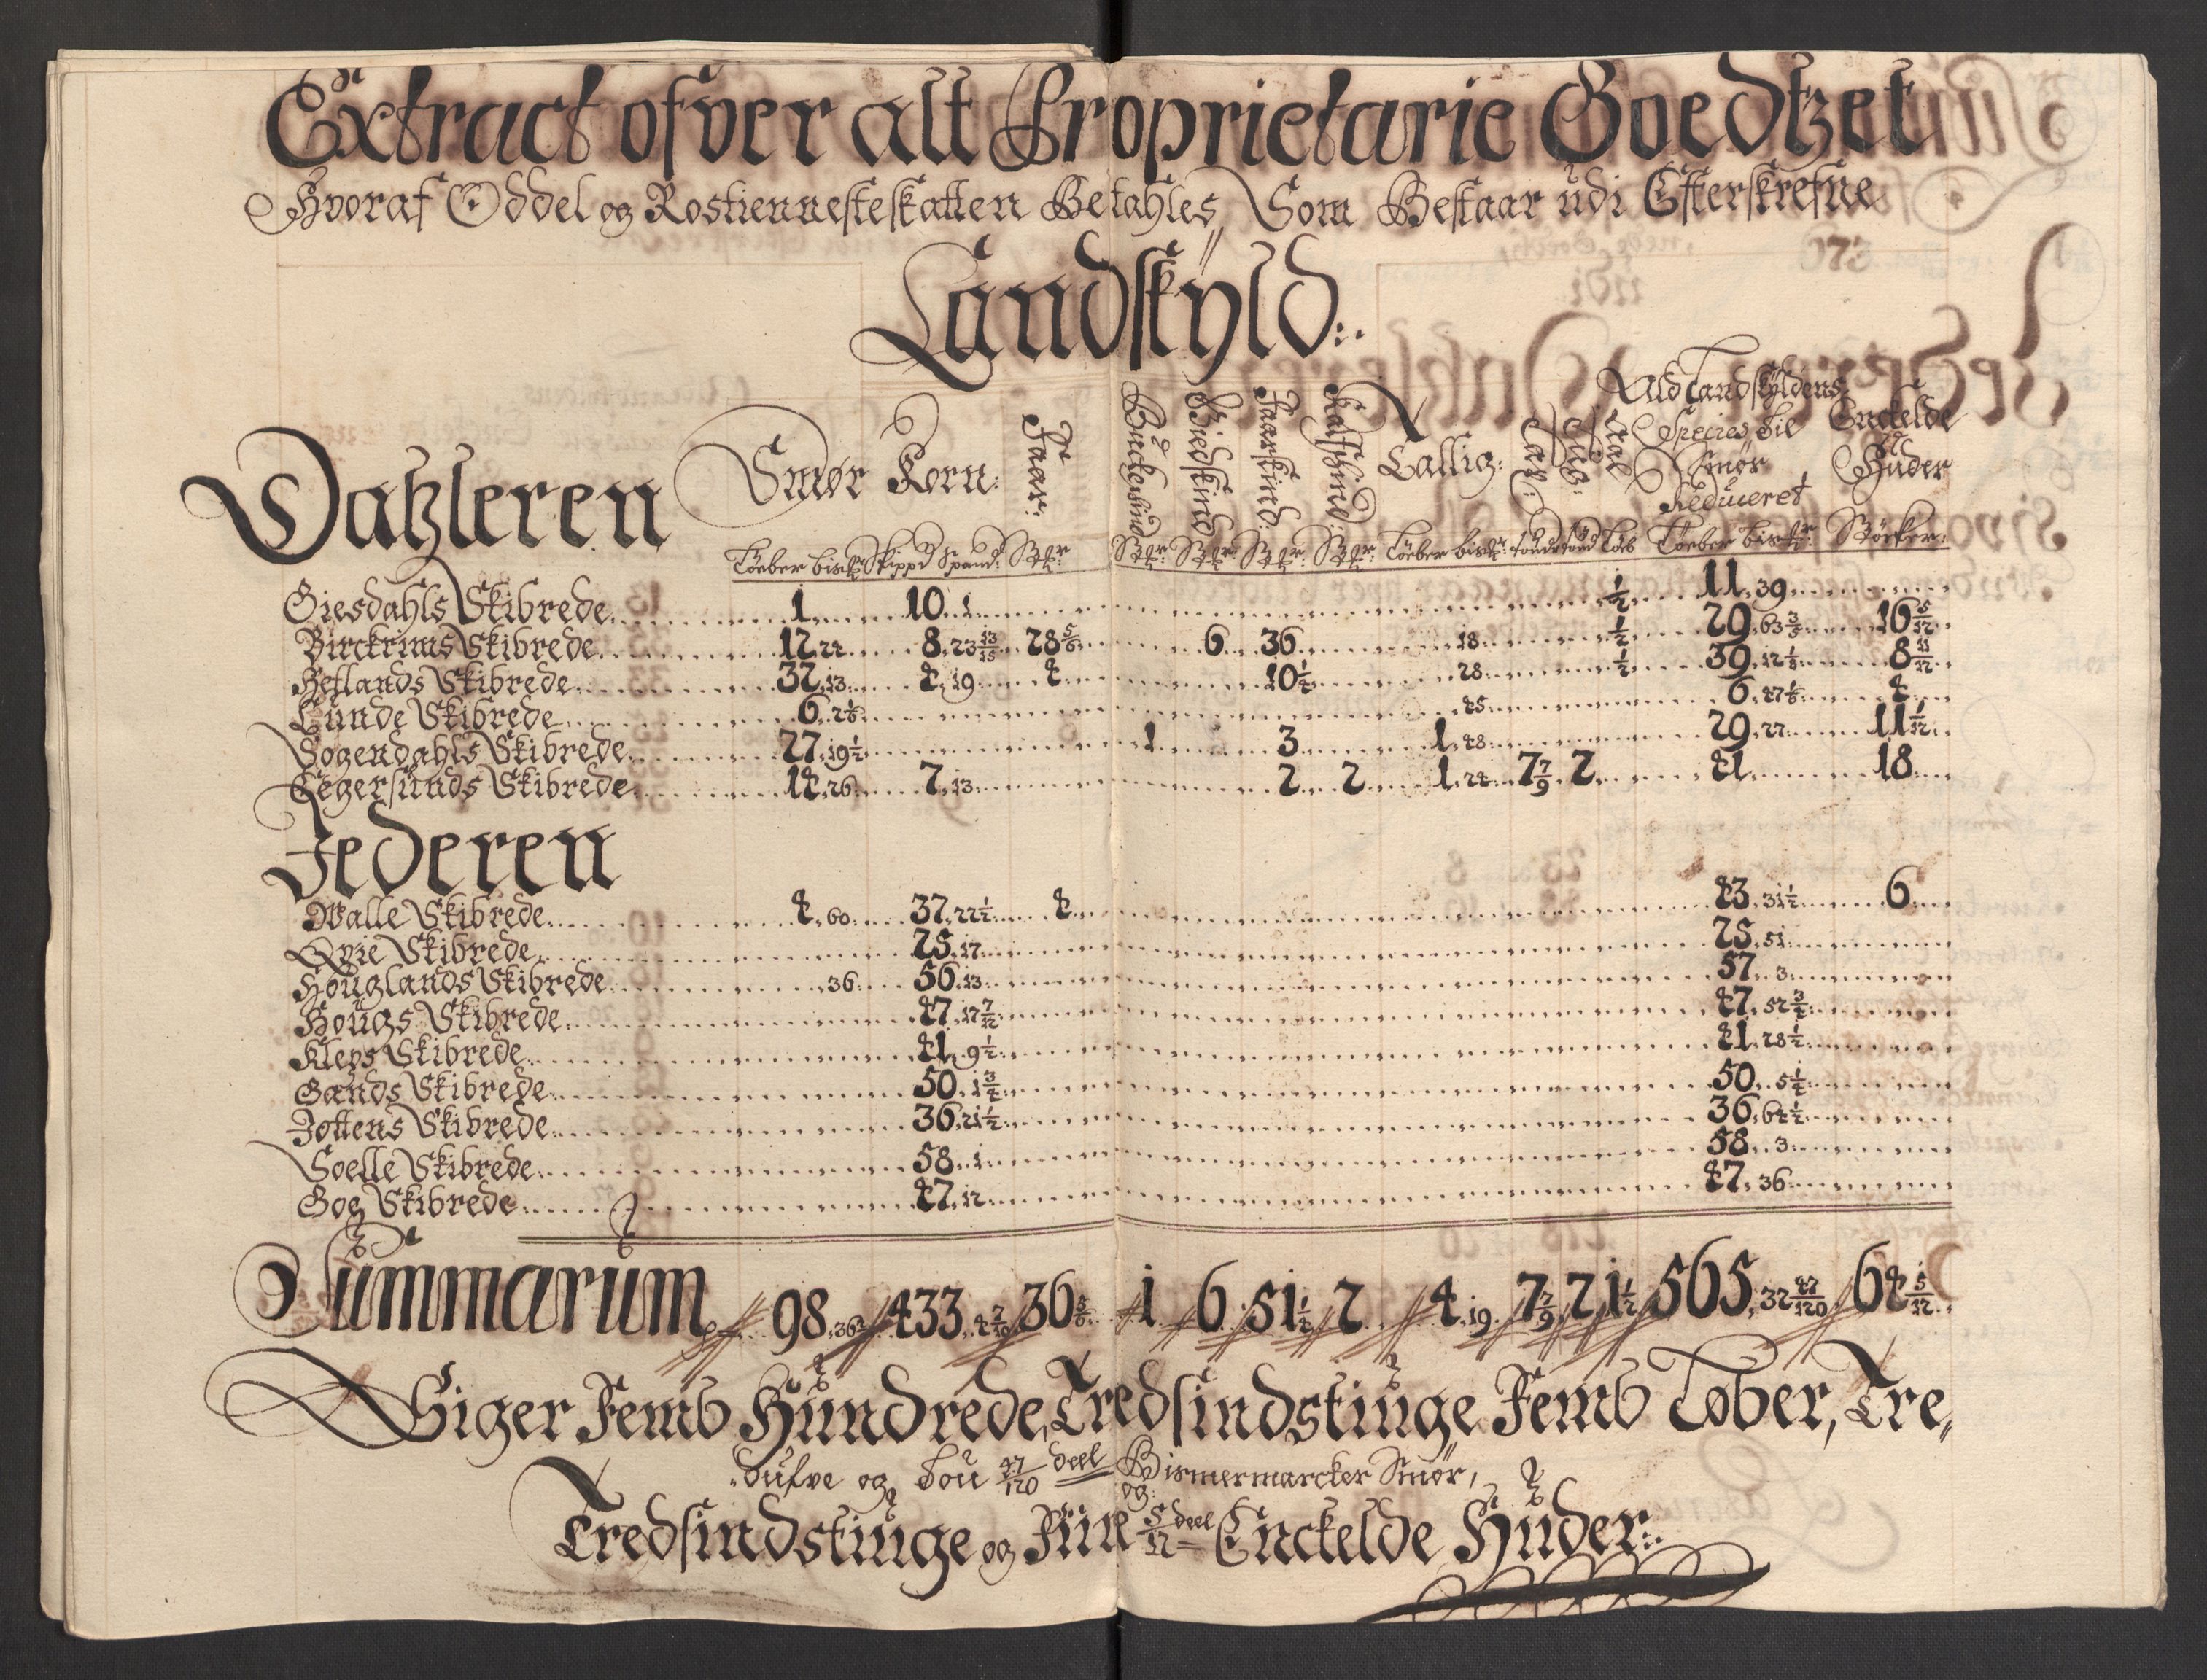 Extract ofver alt Proprietarie Goedtzet
Hvoraf Oddel og Rostienneste skatten Betahles, Som Bestaar udi Efterskrefne
Landskÿld:
Dahleren
Smør Korn: Faar: Buckeskind Giedskind Faarskind: Kalfskind: Tallig: Lax: Sal
Ald Landskÿldens Species til Smør Reduceret
Enckelde Huder
Løeber bismkr Skippd Spand: Støkr: Støkr: Støkr: Støkr: Støkr: Løeber bismkr: Løeber bismkr: Støcker:
Giesdahls Skibrede 1 10. 1 1/2 11. 39
Birckrims Skibrede 12. 24 8. 23 13/15 28 5/6 6 36 18 1/2 29. 63 3/5 16 5/12
Hetlands Skibrede 32. 13 4. 19 4 10 1/2 28 1/2 39. 12 1/3 8 11/12
Lunde Skibrede 6. 2 1/6 45 6. 47 1/6 4
Sogendahls Skibrede 27. 19 1/2 1 3 1. 48 29. 22 11 1/12
Eegersunds Skibrede 14. 26 7. 13 2 2 1. 24 7 7/9 2 41 18
Jederen
Walle Skibrede 4. 60 37. 22 1/2 4 43. 31 1/2 6
Qvie Skibrede 25. 17 25. 51
Houglands Skibrede 36 56. 13 57. 3
Hougs Skibrede 47. 17 7/12 47. 52 3/4
Kleps Skibrede 41. 9 1/2 41. 28 1/2
Gands Skibrede 50. 1 3/4 50. 5 1/4
Jottens Skibrede 36. 21 1/2 36. 64 1/2
Soelle Skibrede 58. 1 58. 3
Gog Skibrede 47. 12 47. 36
Summarum 98. 36 2/3 433. 4 7/10 36 5/6 1 6 51 1/2 2 4. 19 7 7/9 2 1 1/2 565. 32 47/120 64 5/12
Siger Femb Hundrede, Tredsindstiuge Femb Løber, Tre,
dufve og Tou 47/120 deel Bismermarcker Smør, og
Tredsindstiuge og Fiir 5/12 deel Enckelde Huder: